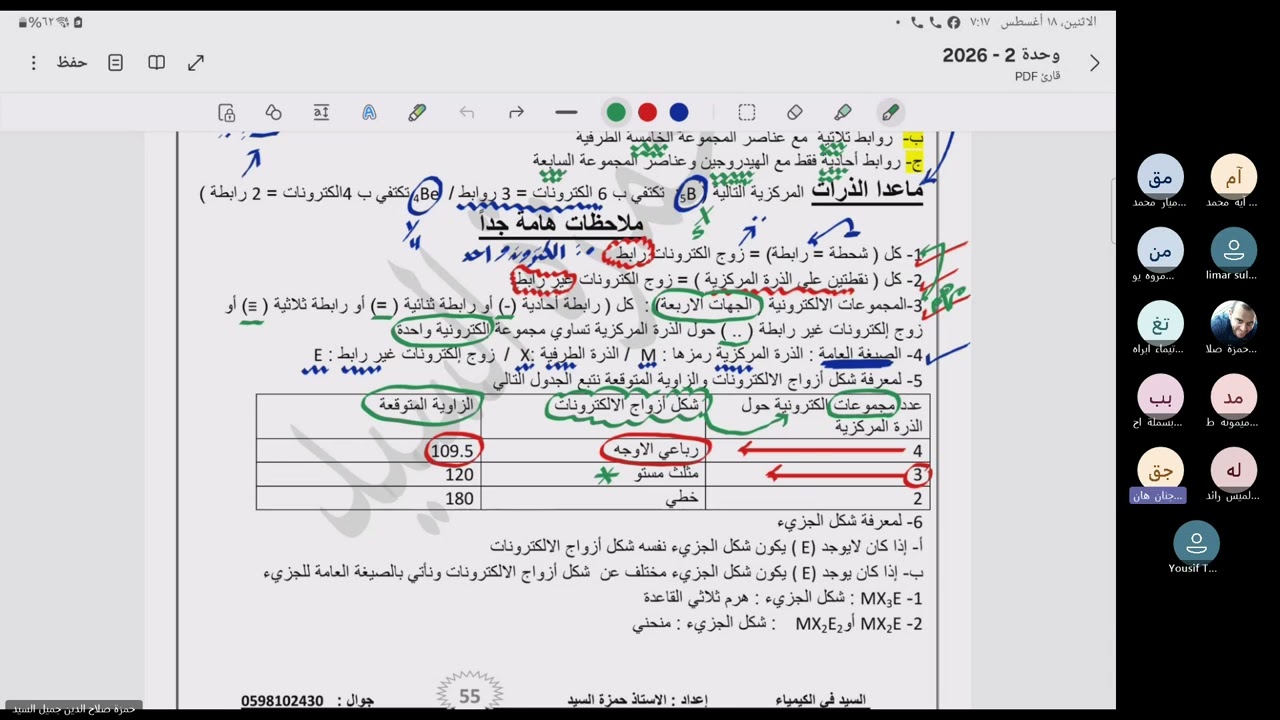 الاثنين، ١٨ أغسطس ٧:١٧
٦٢%
وحدة 2 - 2026
قارئ PDF
حفظ
ب- روابط ثلاثية مع عناصر المجموعة الخامسة الطرفية
ج- روابط أحادية فقط مع الهيدروجين وعناصر المجموعة السابعة
ماعدا الذرات المركزية التالية ₅B تكتفي ب 6 الكترونات = 3 روابط / ₄Be تكتفي ب 4الكترونات = 2 رابطة )
ملاحظات هامة جداً
1- كل ( شحطة = رابطة) = زوج الكترونات رابط
2- كل ( نقطتين على الذرة المركزية ) = زوج الكترونات غير رابط
3-المجموعات الالكترونية ( الجهات الاربعة) : كل ( رابطة أحادية (-) أو رابطة ثنائية (=) أو رابطة ثلاثية (≡) أو
زوج إلكترونات غير رابطة ( .. ) حول الذرة المركزية تساوي مجموعة إلكترونية واحدة
4- الصيغة العامة : الذرة المركزية رمزها : M / الذرة الطرفية :X / زوج إلكترونات غير رابط : E
5- لمعرفة شكل أزواج الالكترونات والزاوية المتوقعة نتبع الجدول التالي
عدد مجموعات الكترونية حول الذرة المركزية شكل أزواج الالكترونات الزاوية المتوقعة
4 رباعي الاوجه 109.5
3 مثلث مستو 120
2 خطي 180
6- لمعرفة شكل الجزيء
أ- إذا كان لايوجد (E ) يكون شكل الجزيء نفسه شكل أزواج الالكترونات
ب- إذا كان يوجد (E ) يكون شكل الجزيء مختلف عن شكل أزواج الالكترونات ونأتي بالصيغة العامة للجزيء
1- MX₃E : شكل الجزيء : هرم ثلاثي القاعدة
2- MX₂E أو MX₂E₂ : شكل الجزيء : منحني
السيد في الكيمياء إعداد : الاستاذ حمزة السيد 55 جوال : 0598102430
حمزة صلاح الدين جميل السيد
مق
ميار محمد...
آم
ايه محمد...
من
مروه يو...
limar sul...
تغ
تيماء ابراه...
حمزة صلا...
بب
بسملة اح...
مد
ميمونه ط...
جق
جنان هان...
له
لميس رائد...
Yousif T...